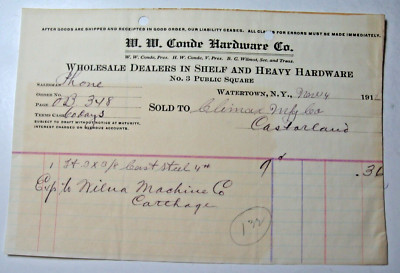 AFTER GOODS ARE SHIPPED AND RECEIPTED IN GOOD ORDER, OUR LIABILITY CEASES. ALL CLAIMS FOR ERRORS MUST BE MADE IMMEDIATELY.
W. W. Conde Hardware Co.
W. W. Conde, Pres. H. W. Conde, V. Pres. B. G. Wilmot, Sec. and Treas.
WHOLESALE DEALERS IN SHELF AND HEAVY HARDWARE
No. 3 PUBLIC SQUARE
SALESMAN Phone
WATERTOWN, N.Y., 191
ORDER NO.
PAGE OB 348
SOLD TO Climax Mfg Co
TERMS CASH 60 days
Castorland
SUBJECT TO DRAFT WITHOUT NOTICE AT MATURITY.
INTEREST CHARGED ON OVERDUE ACCOUNTS.
1 Cast Steel 4" 9 .36
Exp to Machine Co
Carthage
132